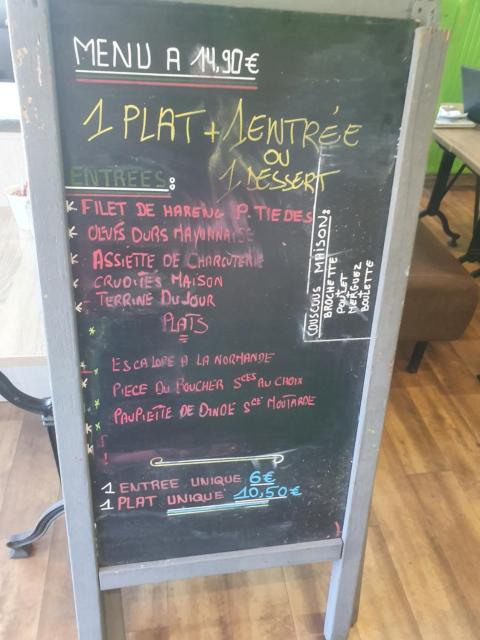 MENU A 14,90€
1 PLAT + 1 ENTRÉE
OU
1 DESSERT
ENTREES:
FILET DE HARENG P. TIEDES
OEUFS DURS MAYONNAISE
ASSIETTE DE CHARCUTERIE
CRUDITÉS MAISON
TERRINE DU JOUR
COUSCOUS MAISON:
BROCHETTE
POULET
MERGUEZ
BOULETTE
PLATS
ESCALOPE A LA NORMANDE
PIECE DU BOUCHER SCES AU CHOIX
PAUPIETTE DE DINDE SCE MOUTARDE
1 ENTREE UNIQUE 6€
1 PLAT UNIQUE 10,50€